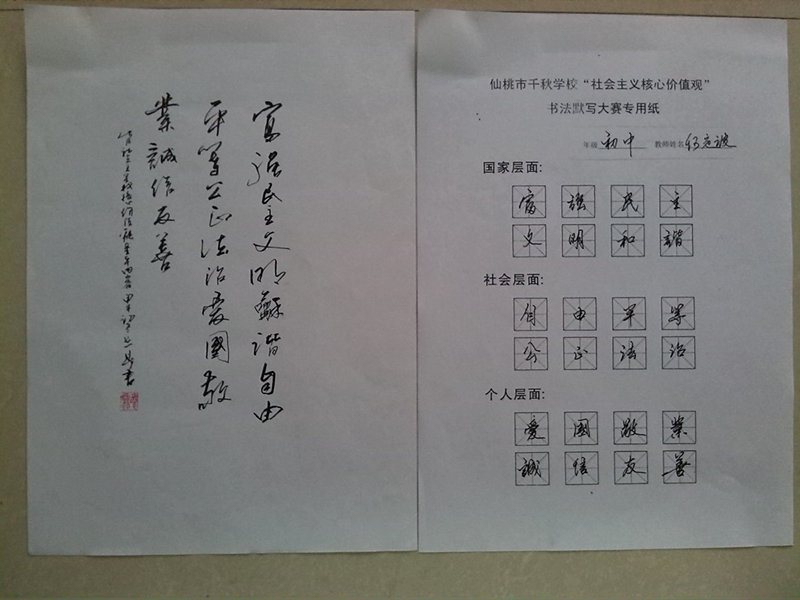 富強民主文明龢諧自由
平等公正法治愛國敬
業誠信友善
仙桃市千秋学校“社会主义核心价值观”
书法默写大赛专用纸
年级 初中 教师姓名
国家层面:
富 強 民 主
文 明 和 諧
社会层面:
自 由 平 等
公 正 法 治
个人层面:
愛 國 敬 業
誠 信 友 善